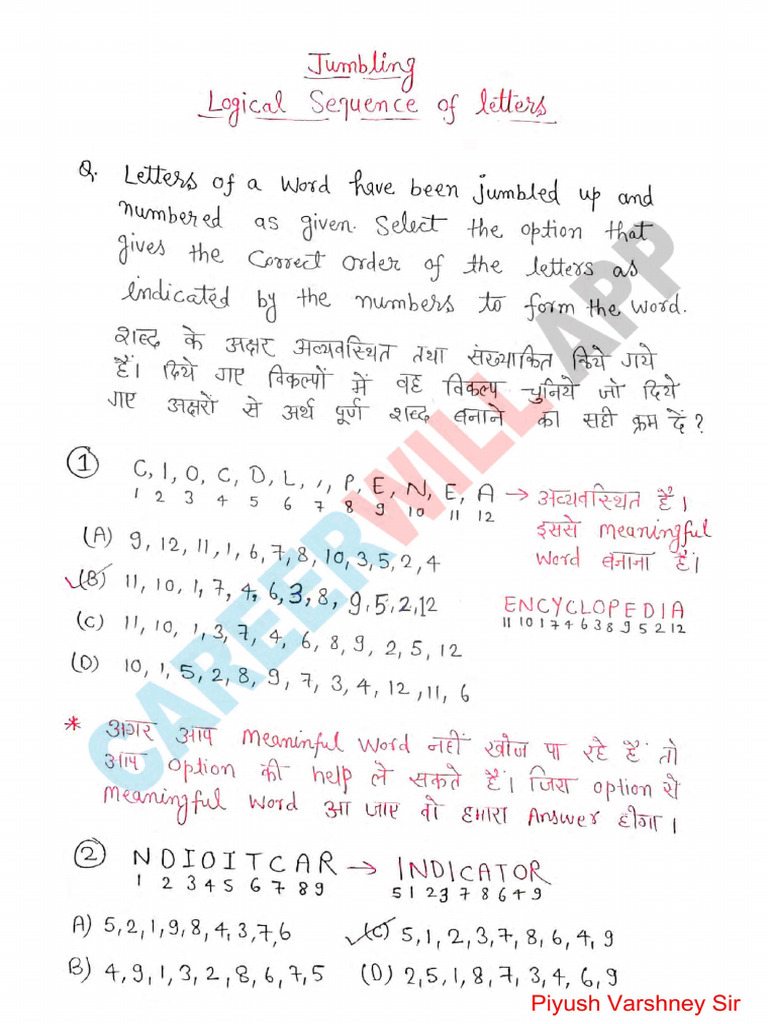 Jumbling
Logical Sequence of letters
Q. Letters of a word have been jumbled up and
numbered as given. Select the option that
gives the correct order of the letters as
indicated by the numbers to form the word.
शब्द के अक्षर अव्यवस्थित तथा संख्यांकित किये गये
हैं। दिये गए विकल्पों में वह विकल्प चुनिये जो दिये
गए अक्षरों से अर्थ पूर्ण शब्द बनाने का सही क्रम दें?
① C, I, O, C, D, L, , , P, E, N, E, A → अव्यवस्थित है।
1 2 3 4 5 6 7 8 9 10 11 12
इससे meaningful
(A) 9, 12, 11, 1, 6, 7, 8, 10, 3, 5, 2, 4
word बनाना है।
(B) 11, 10, 1, 7, 4, 6, 3, 8, 9, 5, 2, 12
ENCYCLOPEDIA
11 10 1 7 4 6 3 8 9 5 2 12
(C) 11, 10, 1, 3, 7, 4, 6, 8, 9, 2, 5, 12
(D) 10, 1, 5, 2, 8, 9, 7, 3, 4, 12, 11, 6
* अगर आप Meaninful word नहीं खोज पा रहे हैं तो
आप option की help ले सकते हैं। जिस option से
Meaningful word आ जाए वो हमारा Answer होगा।
② NDIOITCAR → INDICATOR
1 2 3 4 5 6 7 8 9 5 1 2 3 7 8 6 4 9
A) 5, 2, 1, 9, 8, 4, 3, 7, 6 (C) 5, 1, 2, 3, 7, 8, 6, 4, 9
B) 4, 9, 1, 3, 2, 8, 6, 7, 5 (D) 2, 5, 1, 8, 7, 3, 4, 6, 9
Piyush Varshney Sir
CAREERWILL APP